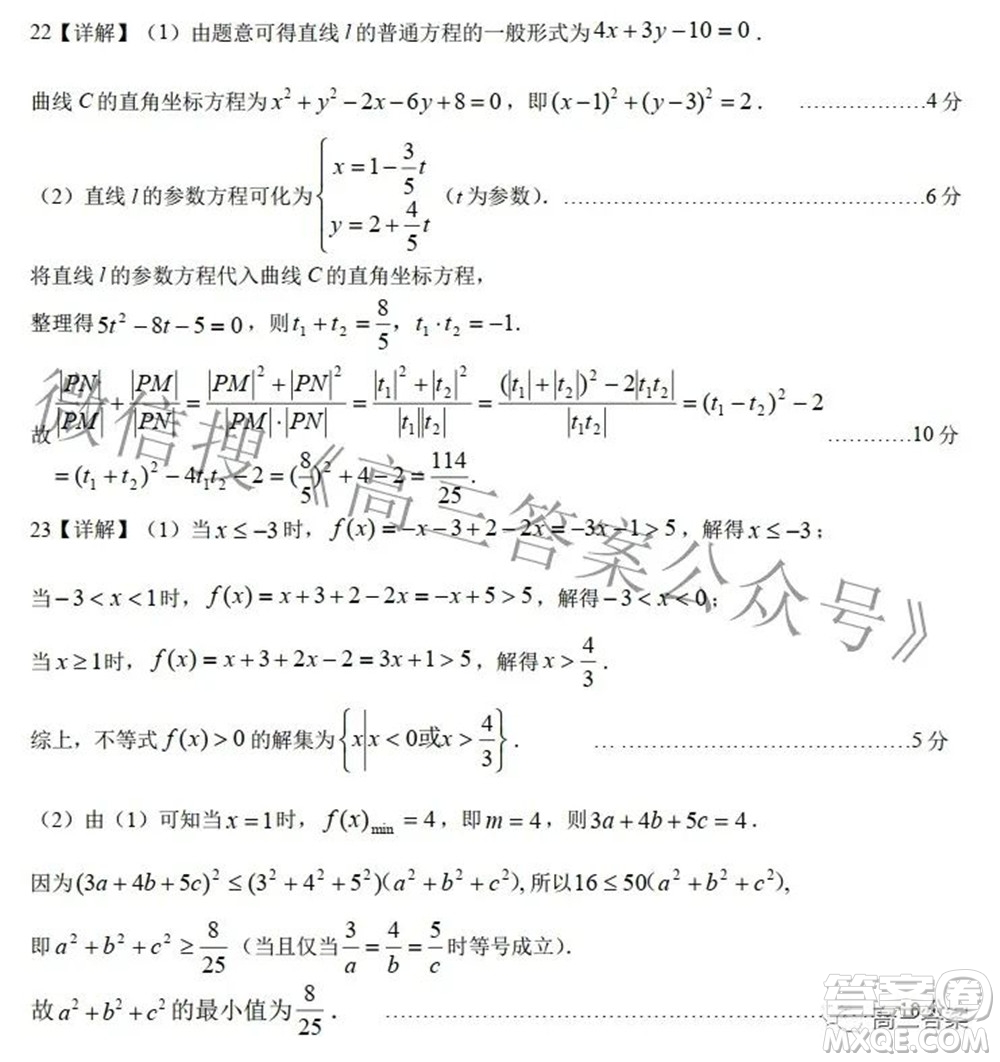 22【详解】（1）由题意可得直线 l 的普通方程的一般形式为 4x+3y−10=0．
曲线 C 的直角坐标方程为 x²+y²−2x−6y+8=0，即 (x−1)²+(y−3)²=2． ………………4 分
（2）直线 l 的参数方程可化为 { x=1−3/5 t, y=2+4/5 t （t 为参数）．………………6 分
将直线 l 的参数方程代入曲线 C 的直角坐标方程，
整理得 5t²−8t−5=0，则 t₁+t₂=8/5，t₁·t₂=−1.
故 |PN|/|PM|+|PM|/|PN|=(|PM|²+|PN|²)/(|PM|·|PN|)=(|t₁|²+|t₂|²)/(|t₁||t₂|)=((|t₁|+|t₂|)²−2|t₁t₂|)/|t₁t₂|=(t₁−t₂)²−2 …………10 分
=(t₁+t₂)²−4t₁t₂−2=(8/5)²+4−2=114/25.
23【详解】（1）当 x≤−3 时，f(x)=−x−3+2−2x=−3x−1>5，解得 x≤−3；
当 −3<x<1 时，f(x)=x+3+2−2x=−x+5>5，解得 −3<x<0；
当 x≥1 时，f(x)=x+3+2x−2=3x+1>5，解得 x>4/3．
综上，不等式 f(x)>0 的解集为 {x|x<0或x>4/3}． … ………………5 分
（2）由（1）可知当 x=1 时，f(x)min=4，即 m=4，则 3a+4b+5c=4．
因为 (3a+4b+5c)²≤(3²+4²+5²)(a²+b²+c²), 所以 16≤50(a²+b²+c²),
即 a²+b²+c²≥8/25（当且仅当 3/a=4/b=5/c 时等号成立）.
故 a²+b²+c² 的最小值为 8/25． ………………10 分
微信搜《高三答案公众号》
答案圈
高三答案
MXQE.COM